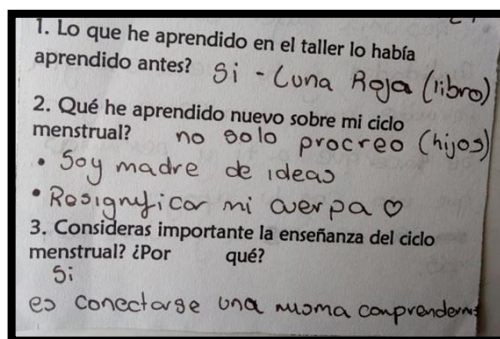 1. Lo que he aprendido en el taller lo había
aprendido antes? Si - Luna Roja (libro)
2. Qué he aprendido nuevo sobre mi ciclo
menstrual? no solo procreo (hijos)
• Soy madre de ideas
• Rosignificar mi cuerpa ♡
3. Consideras importante la enseñanza del ciclo
menstrual? ¿Por qué?
Si
es conectarse una misma comprendernos